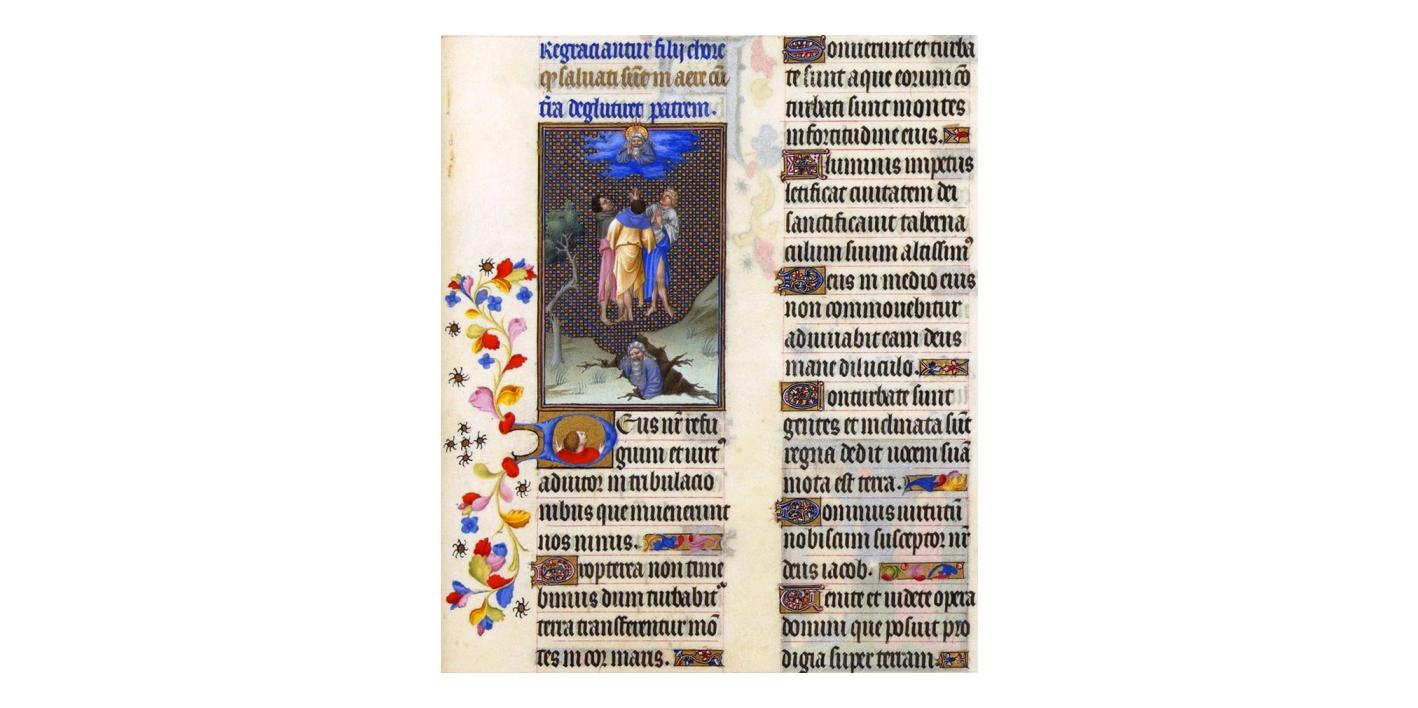 Regraciantur filij chore
q̄ saluati sūt in aere cū
t̄ra deglutiret patrem.
Deus nr̄ refu
gium et uirt᾽
adiutor in tribulacio
nibus que inuenerunt
nos nimis.
Propterea non time
bimus dum turbabit᾽
terra transferentur mō
tes in cor maris.
Sonuerunt et turba
te sunt aque eorum cō
turbati sunt montes
in fortitudine eius.
Fluminis impetus
letificat ciuitatem dei
sanctificauit taberna
culum suum altissim᾽
Deus in medio eius
non commouebitur
adiuuabit eam deus
mane diluculo.
Conturbate sunt
gentes et inclinata sūt
regna dedit uocem suā
mota est terra.
Dominus uirtutū
nobiscum susceptor nr̄
deus iacob.
Uenite et uidete opera
domini que posuit pro
digia super terram